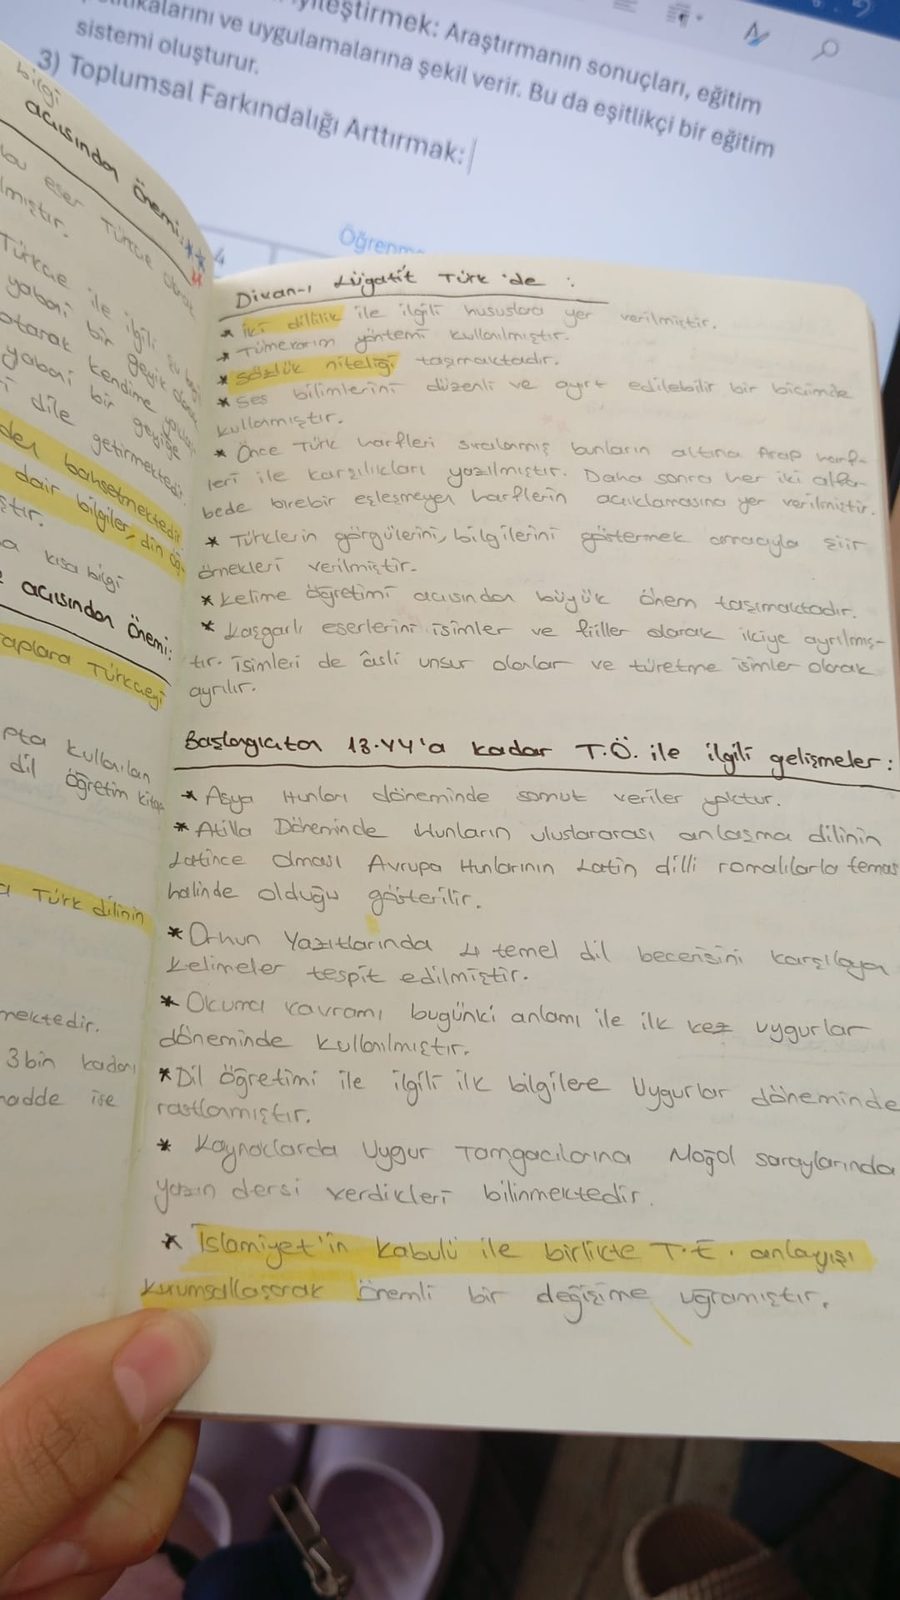 yileştirmek: Araştırmanın sonuçları, eğitim
ikalarını ve uygulamalarına şekil verir. Bu da eşitlikçi bir eğitim
sistemi oluşturur.
3) Toplumsal Farkındalığı Arttırmak:
4
Öğrenm
bilgi
açısından Önemi:
eser Türkçe olarak
lmıştır.
Türkçe ile ilgili şu
yabani bir geyik
otarak kendime
yabani bir geyiğe
i dile getirmektedir.
den bahsetmektedir
dair bilgiler, din
ştır.
kısa bilgi
açısından önemi:
aplara Türkçeyi
pta kullanılan
dil öğretim kitap
Türk dilinin
mektedir.
3 bin kadar
madde ise
Divan-ı Lügatit Türk 'de :
* iki dillilik ile ilgili hususlara yer verilmiştir.
* Tümevarım yöntemi kullanılmıştır.
* sözlük niteliği taşımaktadır.
* Ses bilimlerini düzenli ve ayırt edilebilir bir biçimde
kullanmıştır.
* Önce Türk harfleri sıralanmış bunların altına Arap harf-
leri ile karşılıkları yazılmıştır. Daha sonra her iki alfa-
bede birebir eşleşmeyen harflerin açıklamasına yer verilmiştir.
* Türklerin görgülerini, bilgilerini göstermek amacıyla şiir
örnekleri verilmiştir.
* Kelime öğretimi açısından büyük önem taşımaktadır.
* Kaşgarlı eserlerini isimler ve fiiller olarak ikiye ayrılmış-
tır. isimleri de âsli unsur olanlar ve türetme isimler olarak
ayrılır.
Başlangıçtan 13.YY'a kadar T.Ö. ile ilgili gelişmeler :
* Asya Hunları döneminde somut veriler yoktur.
* Atilla Döneminde Hunların uluslararası anlaşma dilinin
Latince olması Avrupa Hunlarının Latin dilli romalılarla temas
halinde olduğu gösterilir.
* Orhun Yazıtlarında 4 temel dil becerisini karşılayan
kelimeler tespit edilmiştir.
* Okuma kavramı bugünki anlamı ile ilk kez uygurlar
döneminde kullanılmıştır.
* Dil öğretimi ile ilgili ilk bilgilere Uygurlar döneminde
rastlanmıştır.
* Kaynaklarda Uygur Tamgacılarına Moğol saraylarında
yazın dersi verdikleri bilinmektedir.
* İslamiyet'in kabulü ile birlikte T.E. anlayışı
kurumsallaşarak önemli bir değişime uğramıştır.